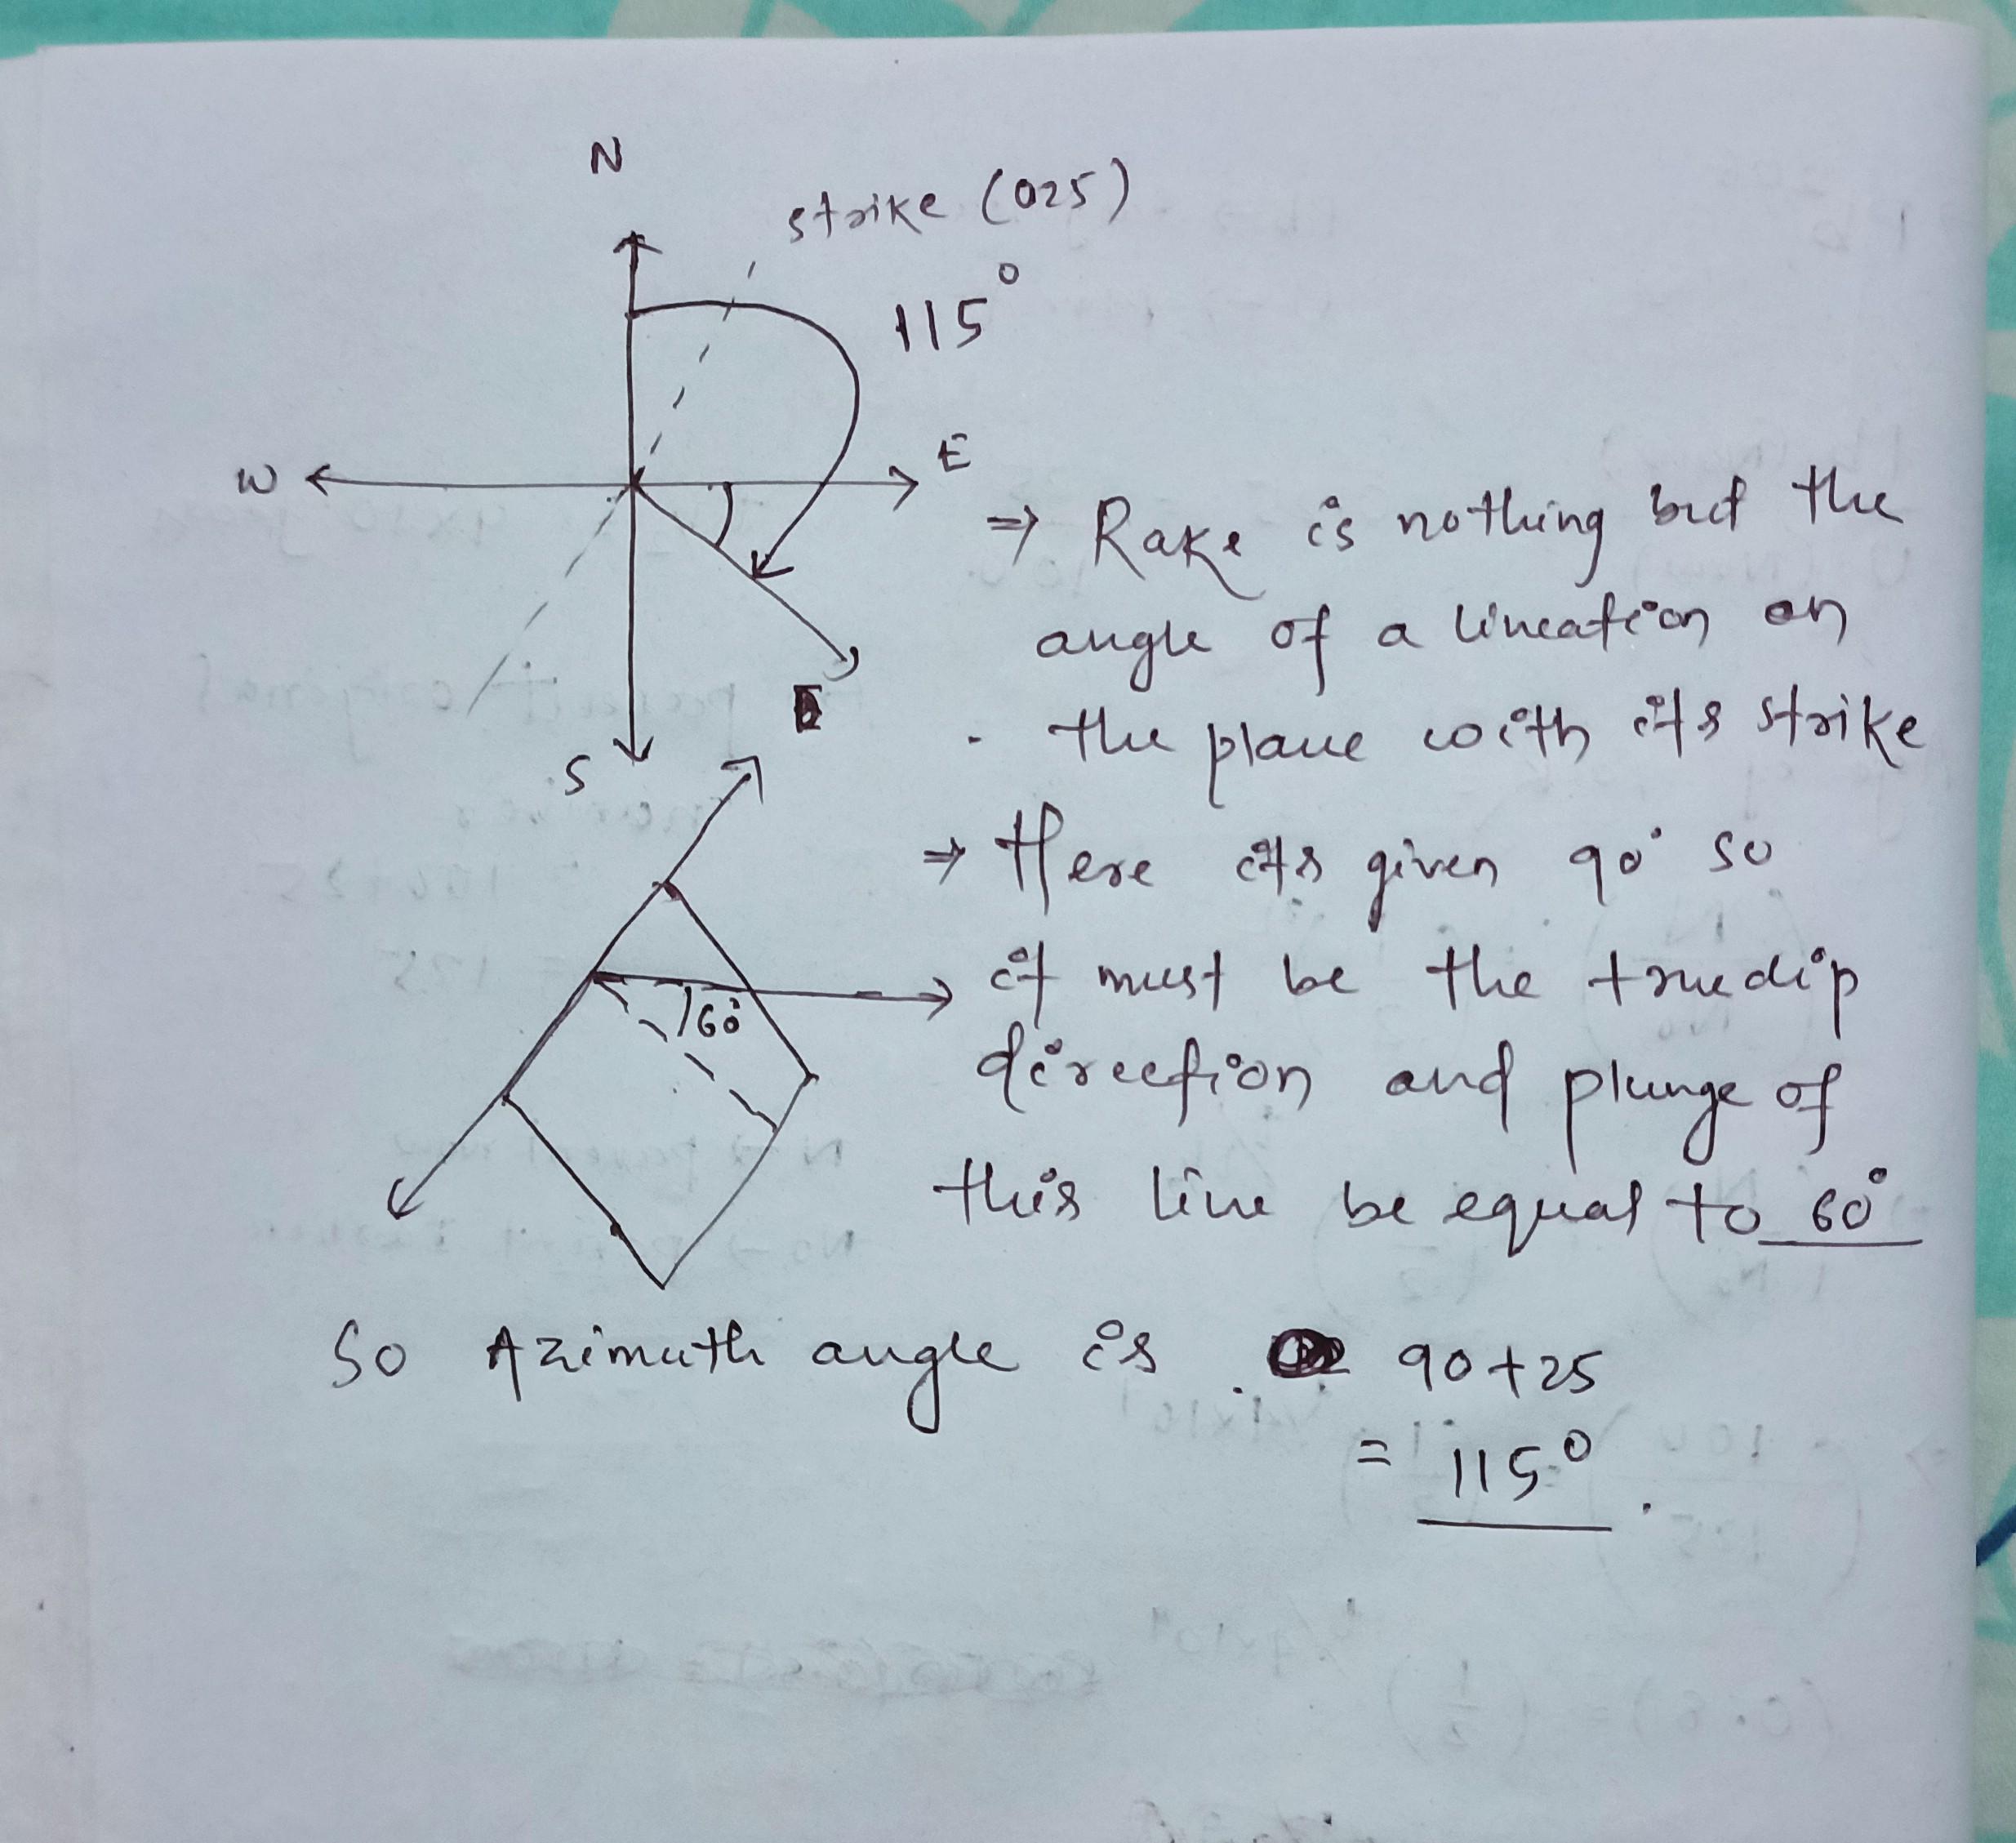 N
strike (025)
115°
W
E
S
⇒ Rake is nothing but the
angle of a lineation on
the plane with its strike
⇒ Here its given 90° so
60°
it must be the true dip
direction and plunge of
this line be equal to 60°
So Azimuth angle is 90+25
= 115°.